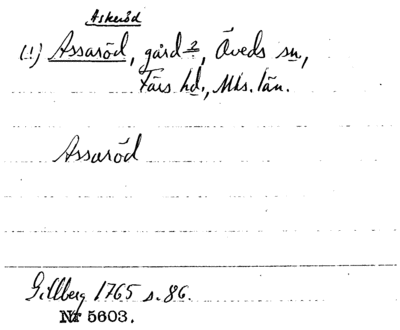 Askeröd
(!) Assaröd, gård 2, Öveds sn,
Färs hd., Mhs. län.
Assaröd
Gillberg 1765 s. 86.
Nr 5603.